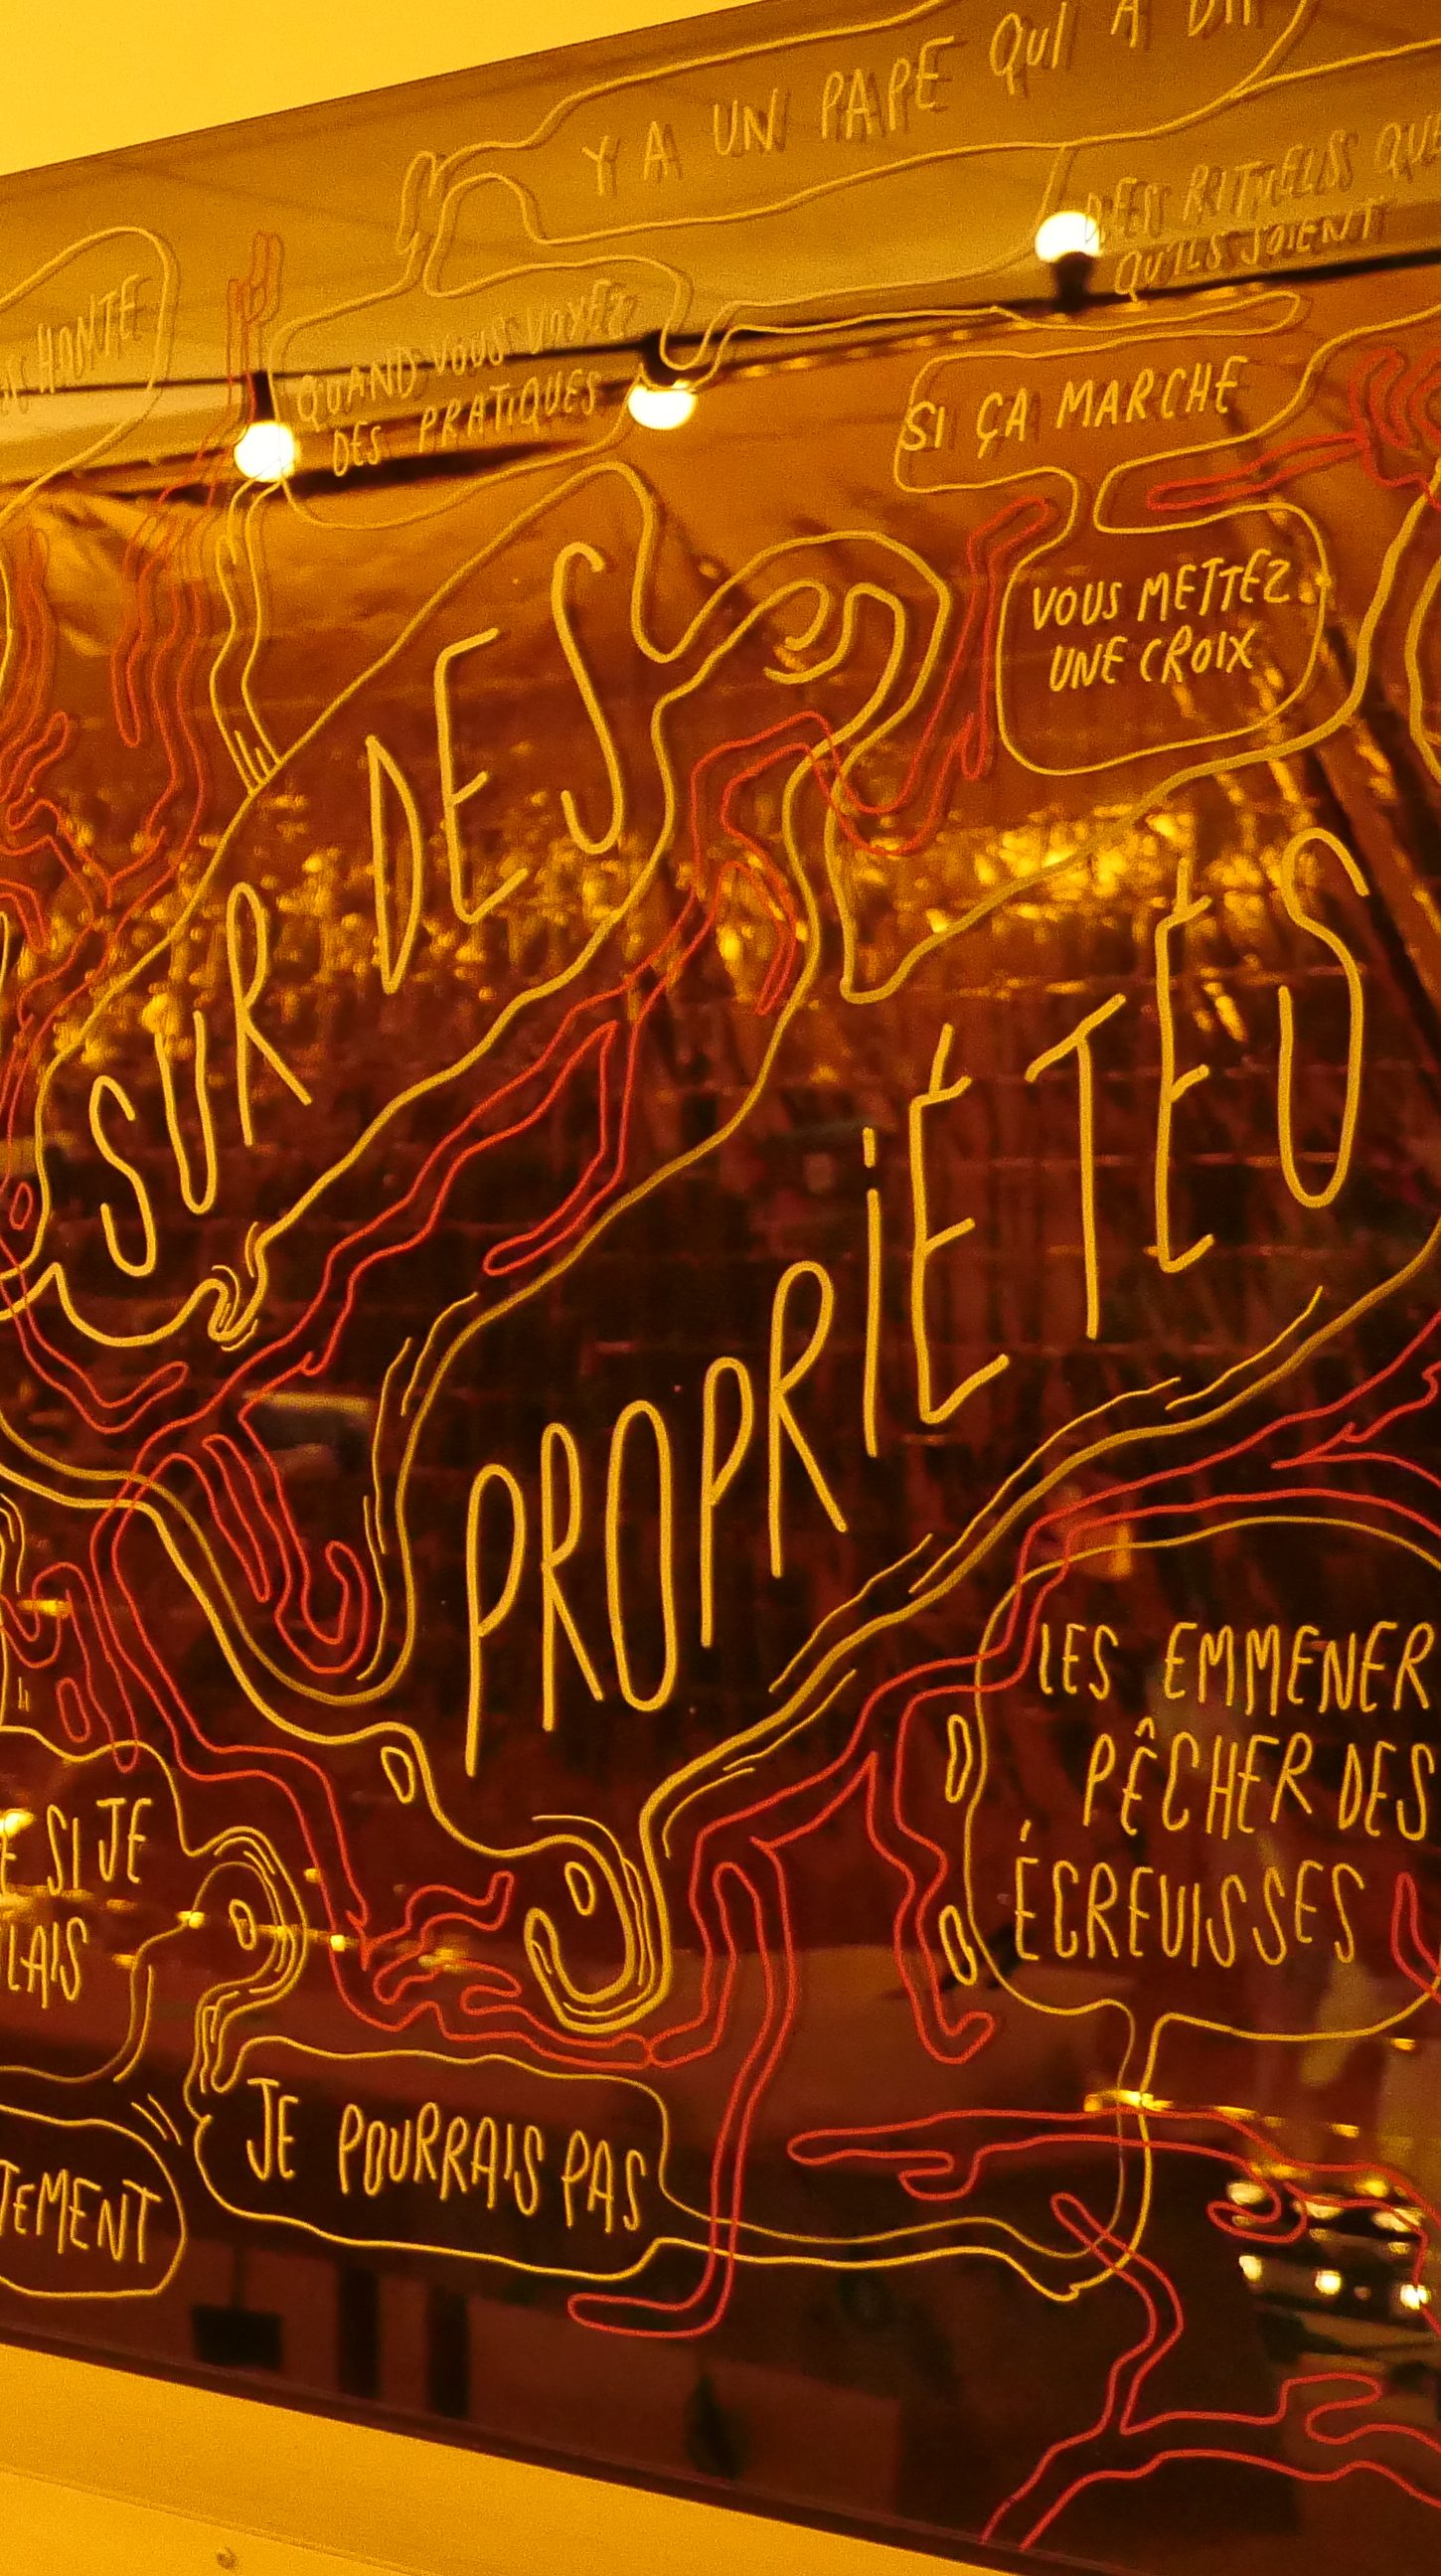 Y A UN PAPE QUI A DIT
DES RITUELS QUE
QU'ILS SOIENT
HONTE
QUAND VOUS VOYEZ
DES PRATIQUES
SI ÇA MARCHE
VOUS METTEZ
UNE CROIX
SUR DES
PROPRIÉTÉS
LES EMMENER
PÊCHER DES
ÉCREVISSES
SI JE
LAIS
JE POURRAIS PAS
TEMENT